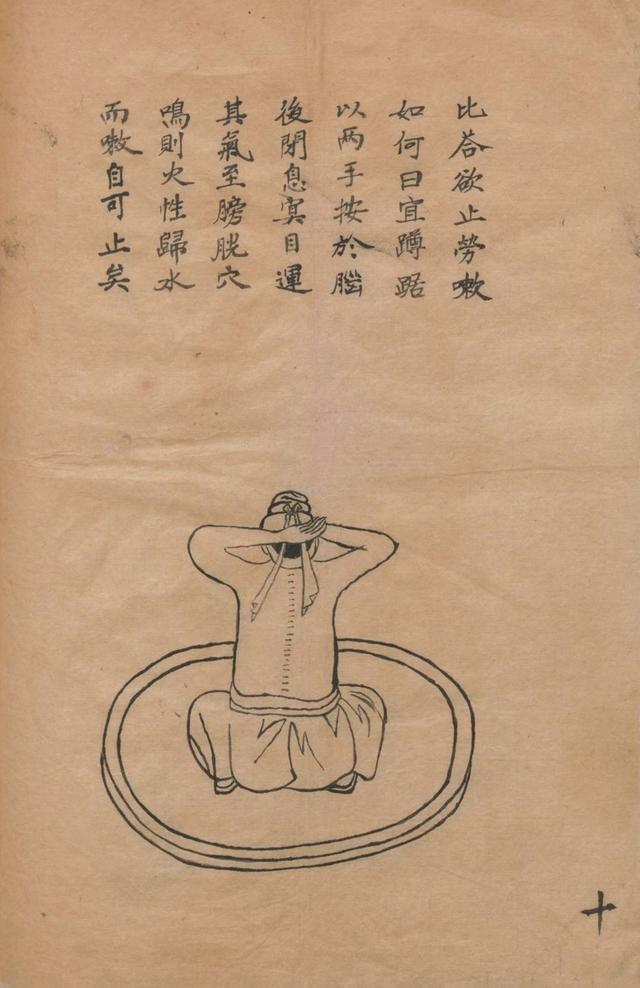 比荅欲止勞嗽
如何曰宜蹲踞
以两手按於腦
後閉息㝠目運
其氣至膀胱穴
鳴則火性歸水
而嗽自可止矣
十